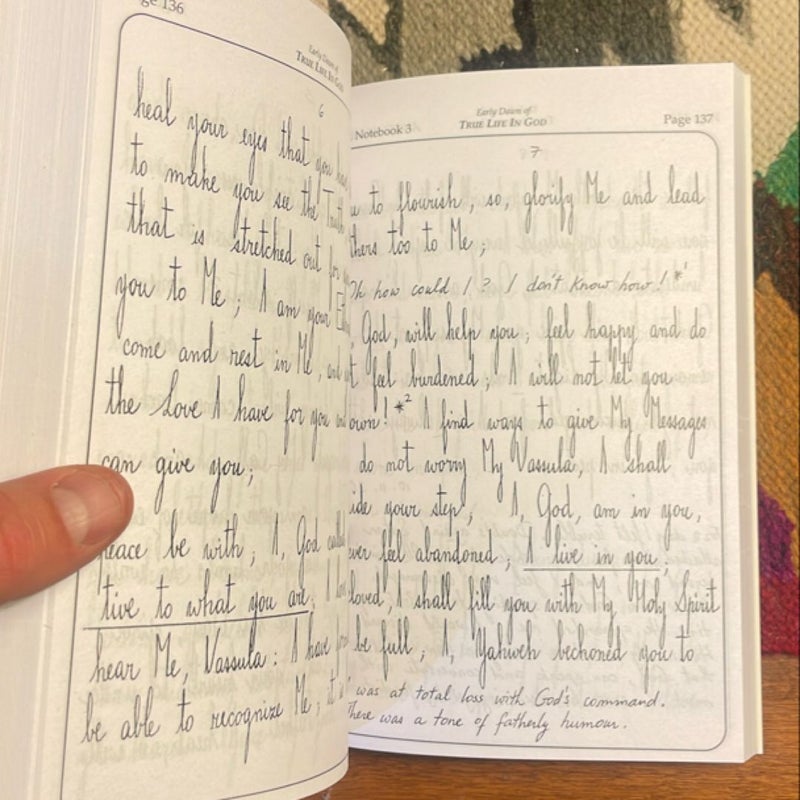 Page 136
Early Dawn of
TRUE LIFE IN GOD
6
heal your eyes that you
to make you see the Truth
that is stretched out for
you to Me; I am your
come and rest in Me, and
the Love I have for you and
can give you;
peace be with; I, God called
tive to what you are; I
hear Me, Vassula: I have
be able to recognize Me; it
Notebook 3
Early Dawn of
TRUE LIFE IN GOD
Page 137
7
to flourish, so, glorify Me and lead
thers too to Me;
Oh how could I? I don't know how! *1
God, will help you; feel happy and do
feel burdened; I will not let you
own! *2 I find ways to give My Messages
do not worry My Vassula, I shall
ide your step; I, God, am in you,
ver feel abandoned; I live in you;
loved, I shall fill you with My Holy Spirit
be full; I, Yahweh bechoned you to
was at total loss with God's command.
There was a tone of fatherly humour.